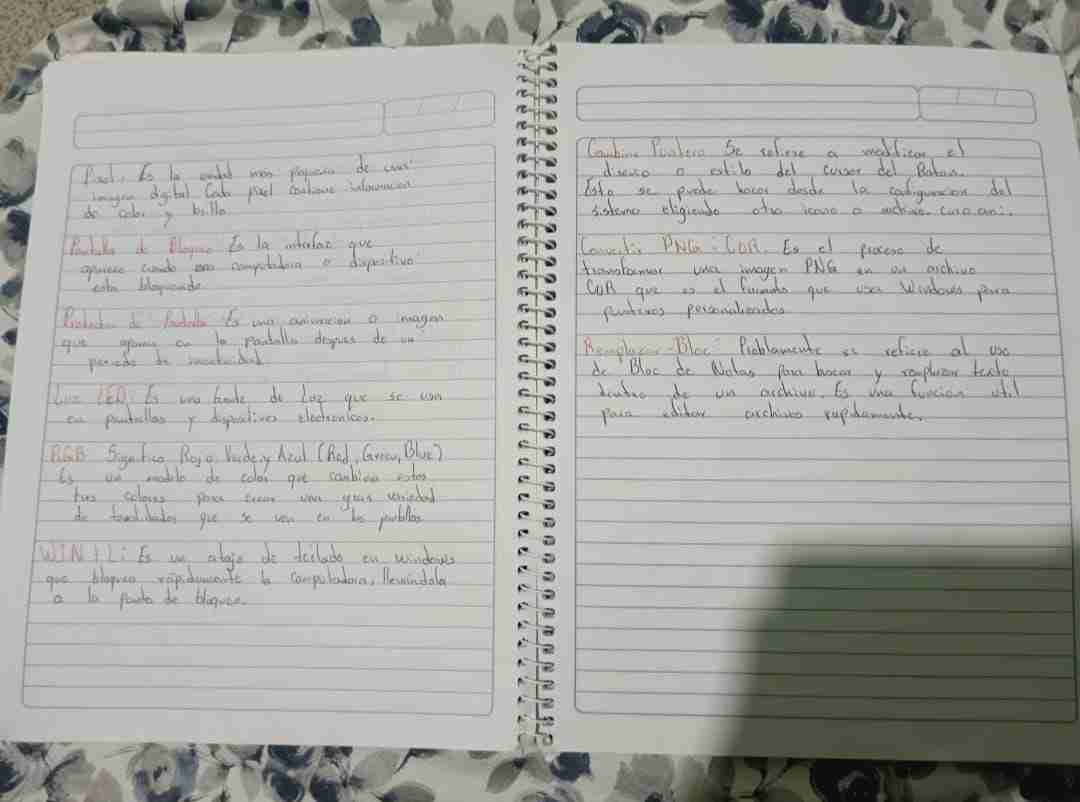 Pixel: Es la unidad mas pequeña de una
imagen digital Cada pixel contiene informacion
de color y brillo
Pantalla de Bloqueo Es la interfaz que
aparece cuando una computadora o dispositivo
esta bloqueado
Protector de Pantalla Es una animacion o imagen
que aparece en la pantalla despues de un
periodo de inactividad.
Luz LED: Es una fuente de Luz que se usa
en pantallas y dispositivos electronicos.
RGB Significa Rojo, Verde y Azul (Red, Green, Blue)
Es un modelo de color que combina estos
tres colores para crear una gran variedad
de tonalidades que se ven en las
WIN + L: Es un atajo de teclado en Windows
que bloquea rápidamente la computadora, llevándola
a la de bloqueo.
Puntero Se refiere a modificar el
diseño o estilo del cursor del Raton.
Esto se puede hacer desde la configuracion del
sistema eligiendo otro icono o archivo
PNG : CUR. Es el proceso de
transformar una imagen PNG en un archivo
CUR que es el formato que usa Windows para
punteros personalizados
Remplazar - Bloc: Problamente se refiere al uso
de Bloc de Notas para hacer y remplazar texto
dentro de un archivo. Es una funcion util
para editar archivos rapidamente.